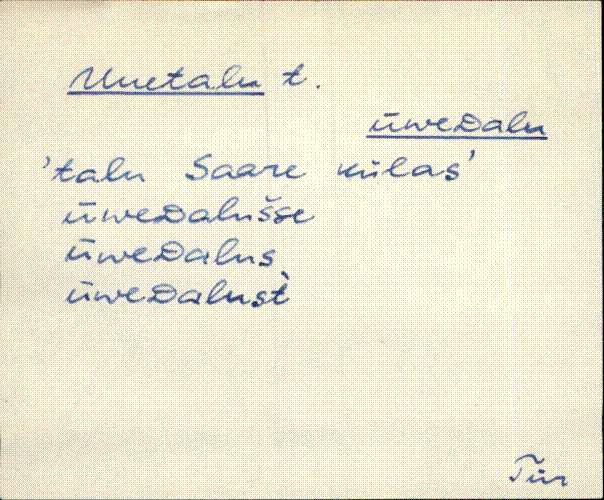 Uuetalu t.
ūweDalu
'talu Saare külas'
ūweDalušse
ūweDalus
ūweDalust̀
Tür